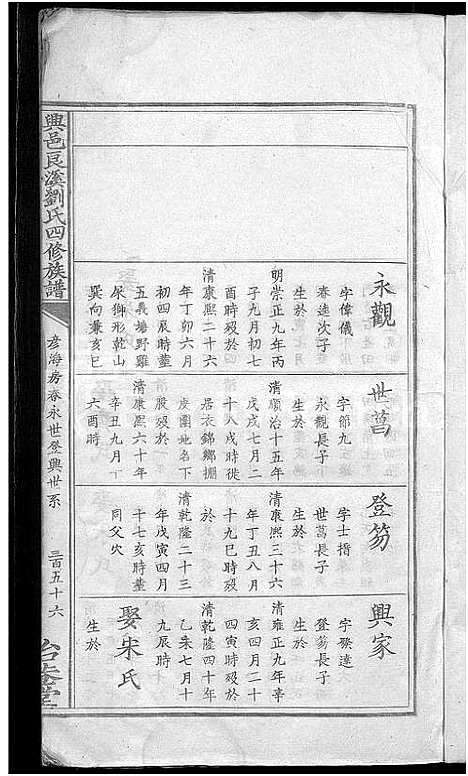 永觀
字偉儀
春逵次子
生於
明崇正九年丙
子九月初七
酉時歿於
清康熙二十六
年丁卯六月
初四辰時塟
五義塘野雞
尿獅形乾山
巽向兼亥巳
世萬
字節九
永觀長子
生於
清順治十五年
戊戌七月二
十八戌時徙
居衣錦鄉棚
皮圍地名下
股歿於
清康熙六十年
辛丑九月十
六酉時
登笏
字士搢
世萬長子
生於
清康熙三十六
年丁丑八月
十九巳時歿
於
清乾隆二十三
年戊寅四月
十七亥時塟
同父穴
興家
字發達
登笏長子
生於
清雍正九年辛
亥四月二十
四寅時歿於
清乾隆四十年
乙未七月十
九辰時
娶宋氏
生於
興邑良溪劉氏四修族譜
彥海房春永世登興世系
三百五十六